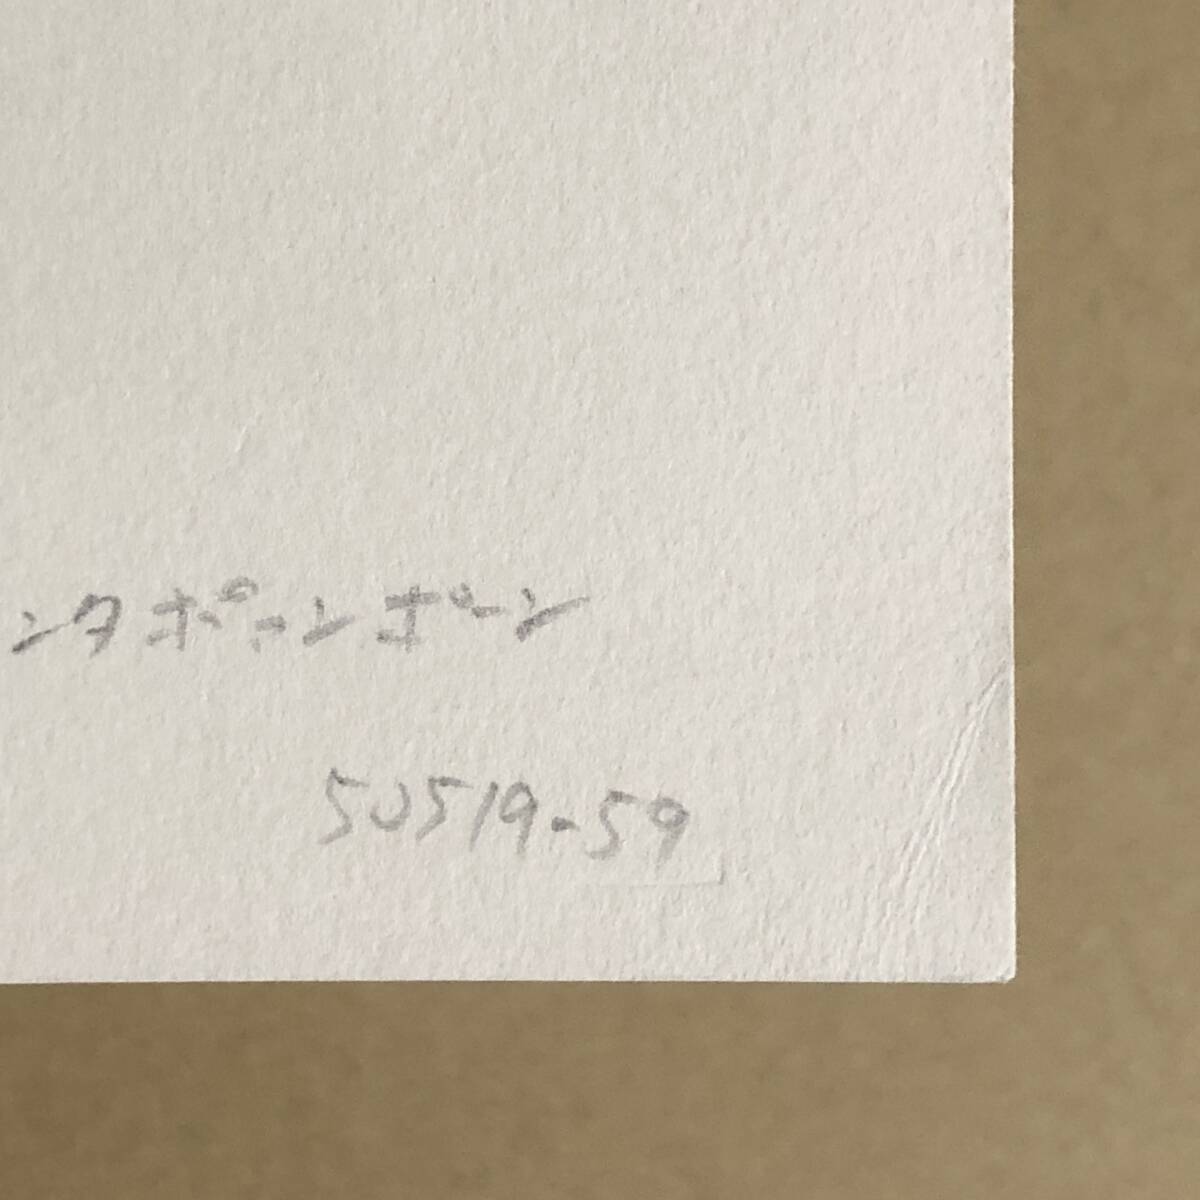 ンタポーンポーン
50519-59